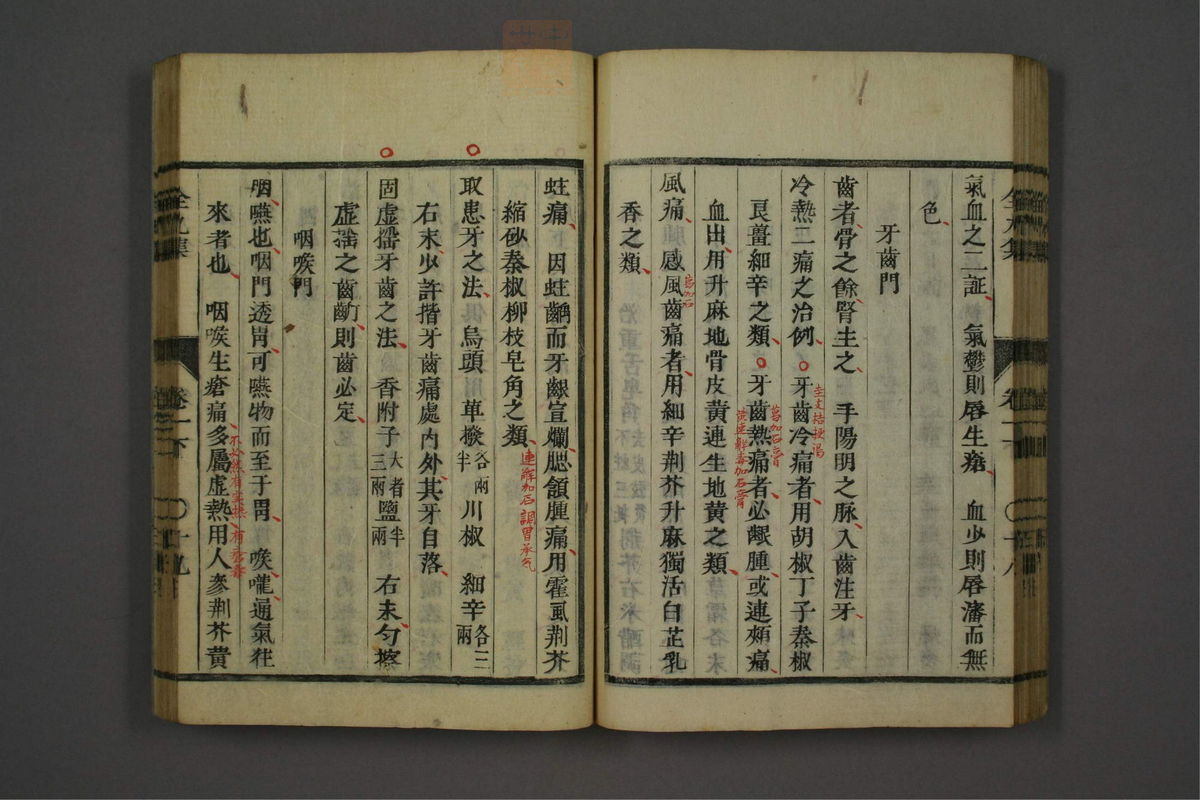 氣血之二証 氣鬱則唇生瘡 血少則唇瀋而無
色
牙齒門
齒者骨之餘腎主之 手陽明之脉入齒注牙
冷熱二痛之治例 牙齒冷痛者用胡椒丁子秦椒
良薑細辛之類 牙齒熱痛者必齦腫或連頰痛
血出用升麻地骨皮黄連生地黄之類
風痛 感風齒痛者用細辛荆芥升麻獨活白芷乳
香之類
蛀痛 因蛀齲而牙齦宣爛腮頷腫痛用藿虱荆芥
縮砂秦椒柳枝皂角之類
取患牙之法 烏頭 蓽撥各兩半 川椒 細辛各三兩
右末少許揩牙齒痛處内外其牙自落
固虛搖牙齒之法 香附子大者三兩 鹽半兩 右末匀擦
虛搖之齒則齒必定
咽喉門
咽嚥也咽門透胃可嚥物而至于胃 喉嚨通氣往
來者也 咽喉生瘡痛多屬虛熱用人參荆芥貴
全九集
卷一下
十八
全九集
卷一下
十九
葛加石膏
調胃承气